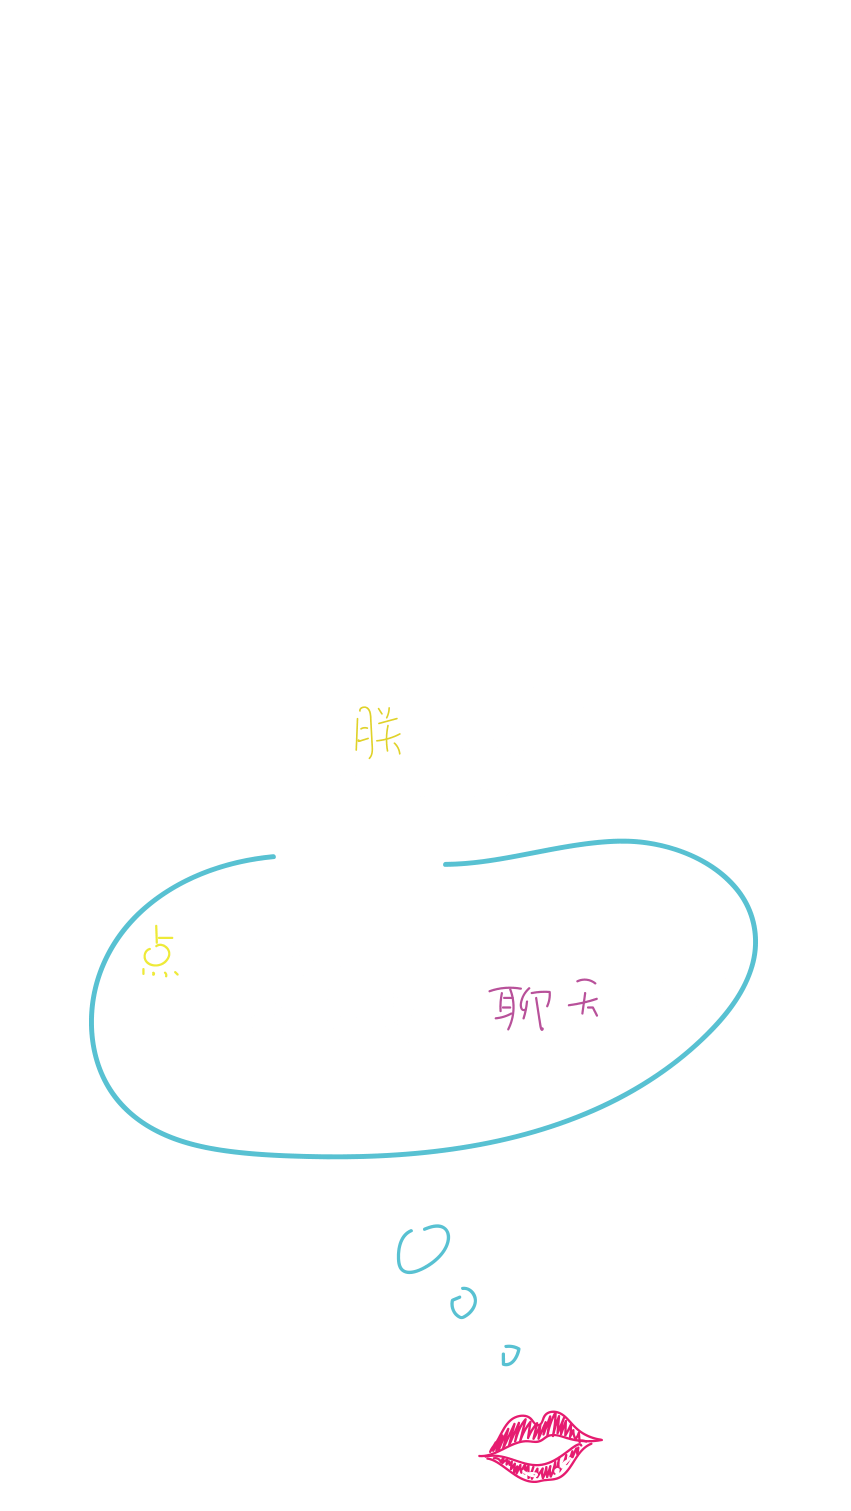 朕
点
聊天